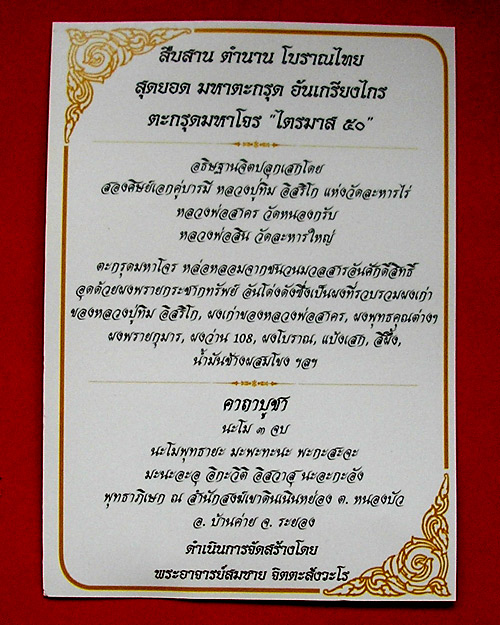 สืบสาน ตำนาน โบราณไทย
สุดยอด มหาตะกรุด อันเกรียงไกร
ตะกรุดมหาโจร "ไตรมาส ๕๐"
อธิษฐานจิตปลุกเสกโดย
สองศิษย์เอกคู่บารมี หลวงปู่ทิม อิสริโก แห่งวัดละหารไร่
หลวงพ่อสาคร วัดหนองกรับ
หลวงพ่อสิน วัดละหารใหญ่
ตะกรุดมหาโจร หล่อหลอมจากชนวนมวลสารอันศักดิ์สิทธิ์
อุดด้วยผงพรายกระชากทรัพย์ อันโด่งดังซึ่งเป็นผงที่รวบรวมผงเก่า
ของหลวงปู่ทิม อิสริโก, ผงเก่าของหลวงพ่อสาคร, ผงพุทธคุณต่างๆ
ผงพรายกุมาร, ผงว่าน 108, ผงโบราณ, แป้งเสก, สีผึ้ง,
น้ำมันช้างผสมโขง ฯลฯ
คาถาบูชา
นะโม ๓ จบ
นะโมพุทธายะ มะพะทะนะ พะกะสะจะ
มะนะอะอุ อิกะวิติ อิสวาสุ นะอะกะอัง
พุทธาภิเษก ณ สำนักสงฆ์เขาดินเนินหย่อง ต. หนองบัว
อ. บ้านค่าย จ. ระยอง
ดำเนินการจัดสร้างโดย
พระอาจารย์สมชาย จิตตะสังวะโร